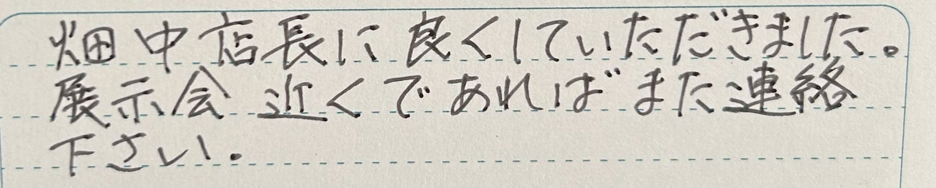 畑中店長に良くしていただきました。
展示会近くであればまた連絡
下さい。